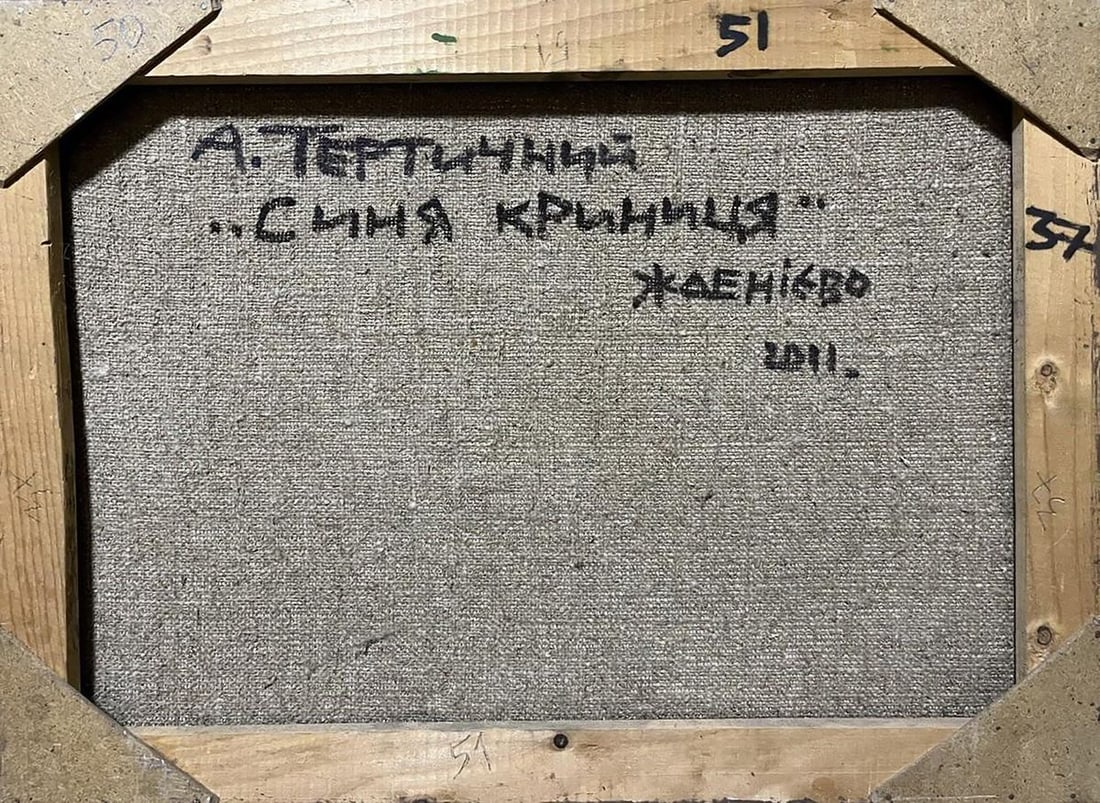 50
51
А. ТЕРТИЧНИЙ
„СИНЯ КРИНИЦЯ"
ЖДЕНІЄВО
2011.
37
51